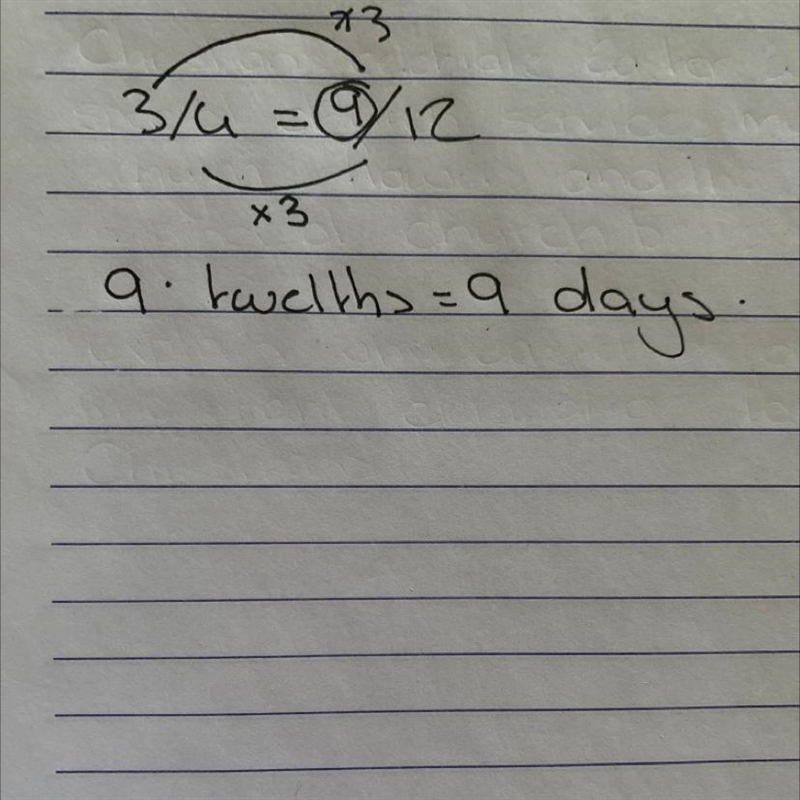 ×3
3/4 = 9/12
×3
9. twelths = 9 days.